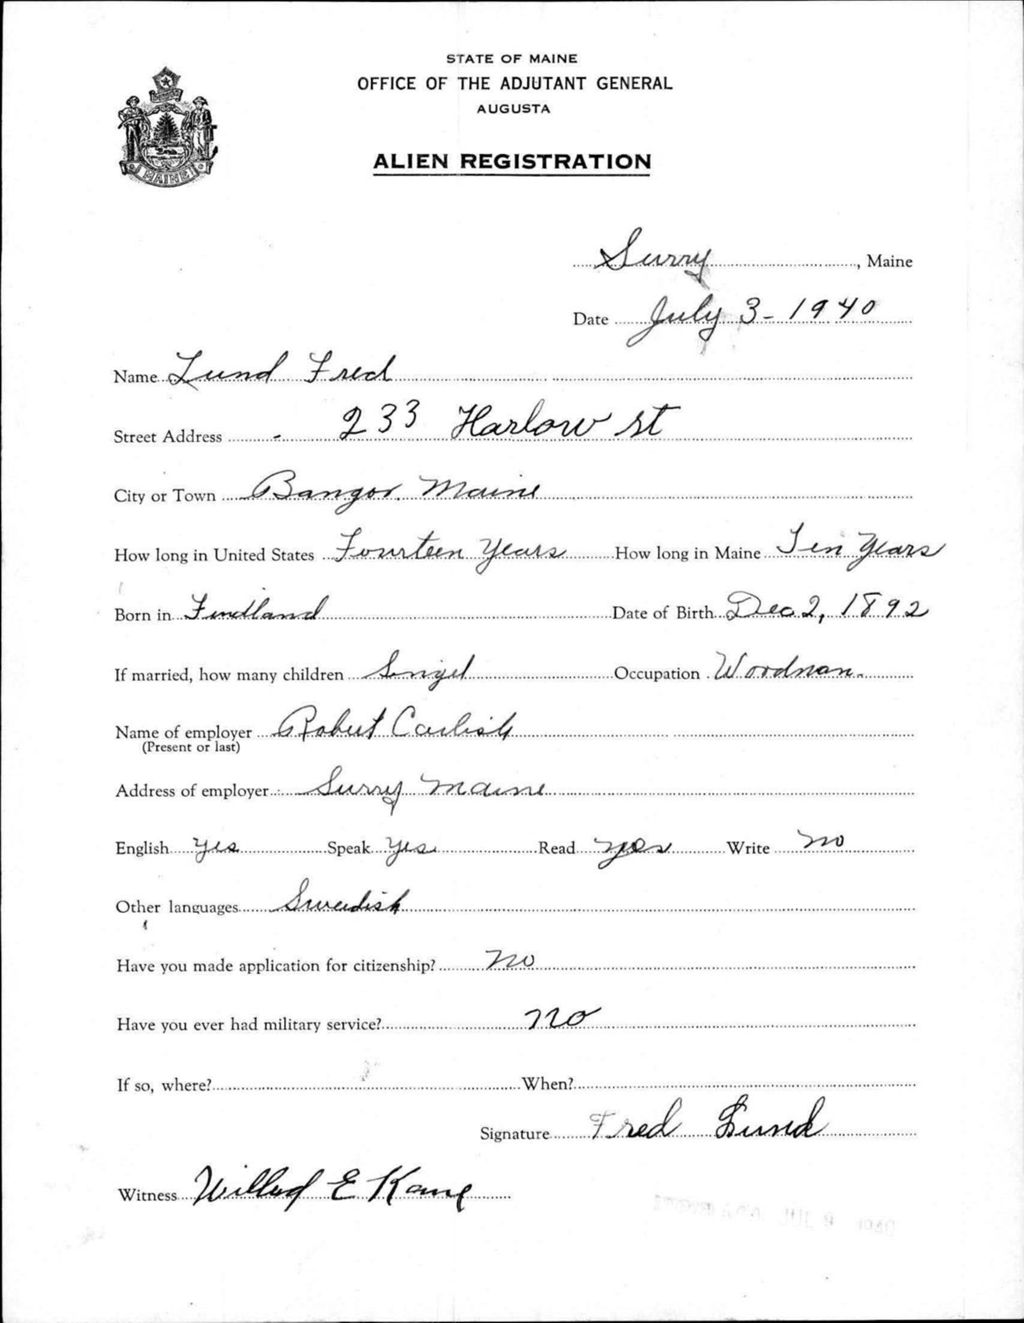 STATE OF MAINE
OFFICE OF THE ADJUTANT GENERAL
AUGUSTA
ALIEN REGISTRATION
MAINE
Surry, Maine
Date July 3 - 1940
Name Lund Fred
Street Address 233 Harlow St
City or Town Bangor. Maine
How long in United States Fourteen Years How long in Maine Ten Years
Born in Findland Date of Birth Dec 2, 1892
If married, how many children Singel Occupation Woodman.
Name of employer Robert Carlisle
(Present or last)
Address of employer Surry Maine
English yes Speak yes Read yes Write no
Other languages Swedish
Have you made application for citizenship? no
Have you ever had military service? no
If so, where? When?
Signature Fred Lund
Witness E Kane
JUL 9 1940